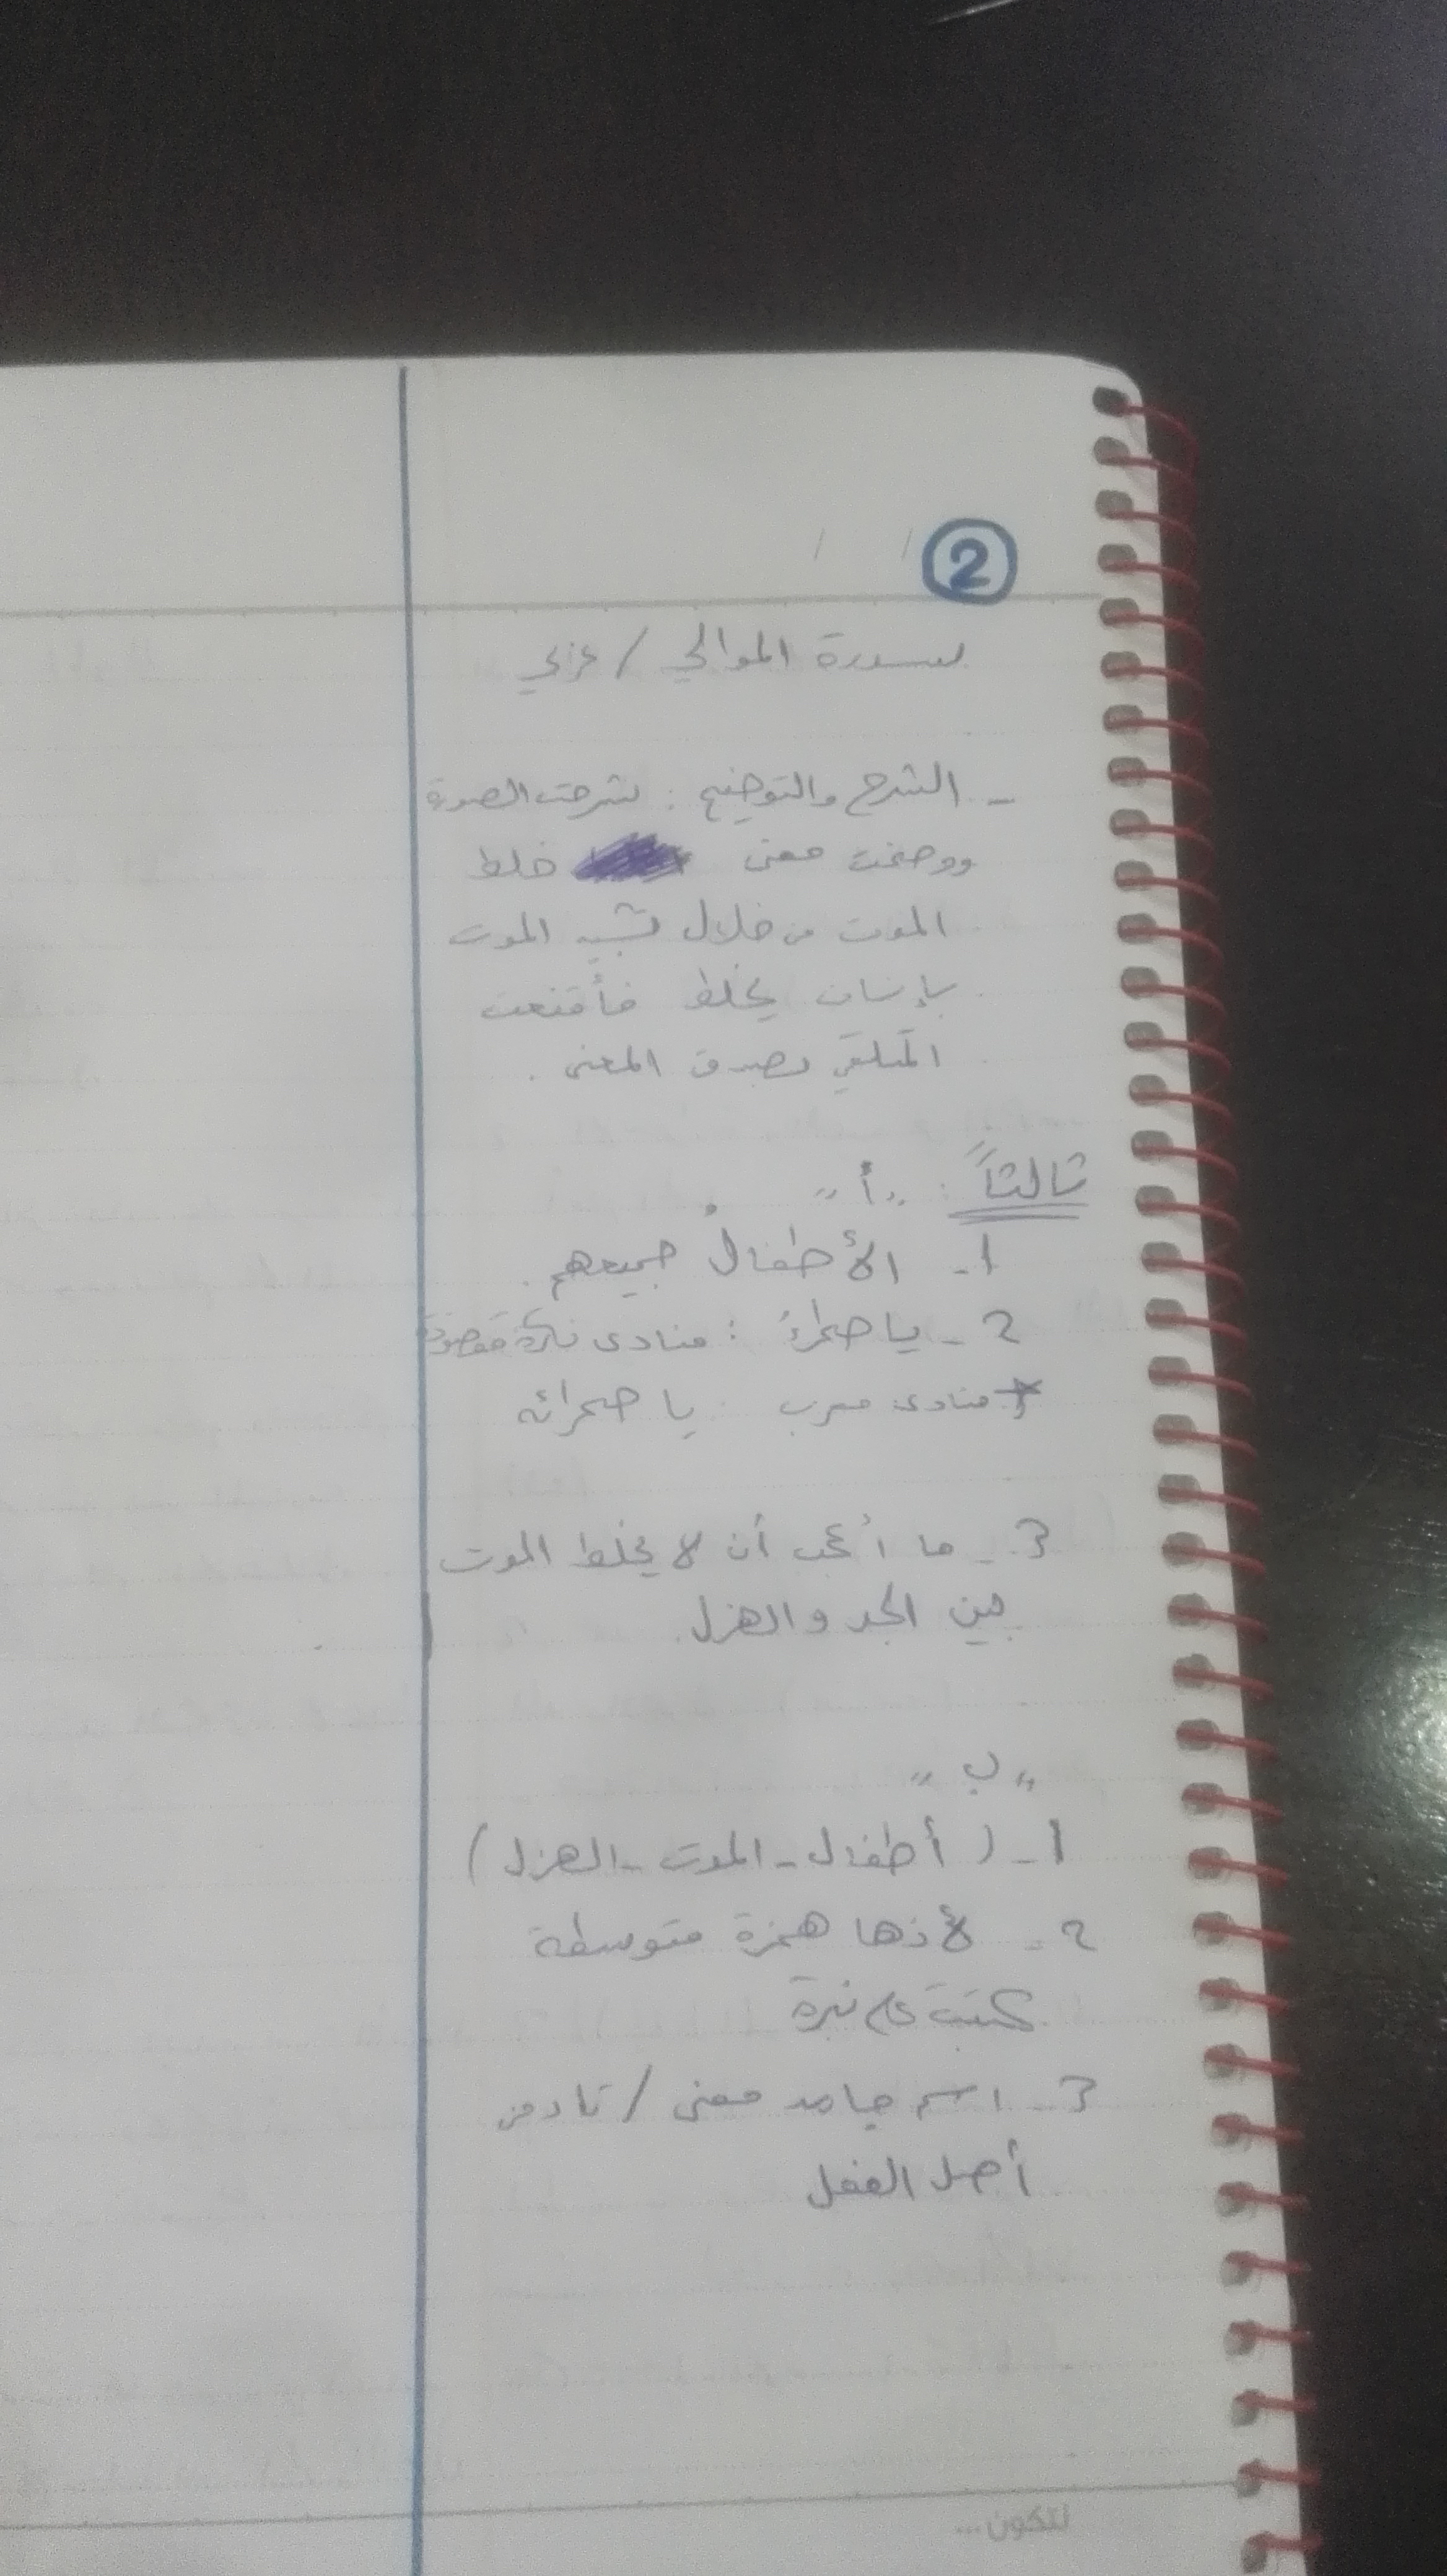 2
لسدرة الموالي / عربي
- الشرح والتوضيح : شرحت الصورة
ووضحت معنى خلط
الموت من خلال تشبيه الموت
بإنسان يخلط فأقنعت
المتلقي بصدق المعنى .
ثالثاً : "أ"
1- الأطفالُ جميعهم .
2- يا صحراءُ : منادى نكرة مقصودة
* منادى معرب : يا صحرائه
3- ما أعجب أن لا يخلط الموت
بين الجد والهزل
"ب"
1- ( أطفال - الموت - الهزل )
2- لأنها همزة متوسطة
كتبت على نبرة
3- اسم جامد معنى /
أصل الفعل
لتكون...